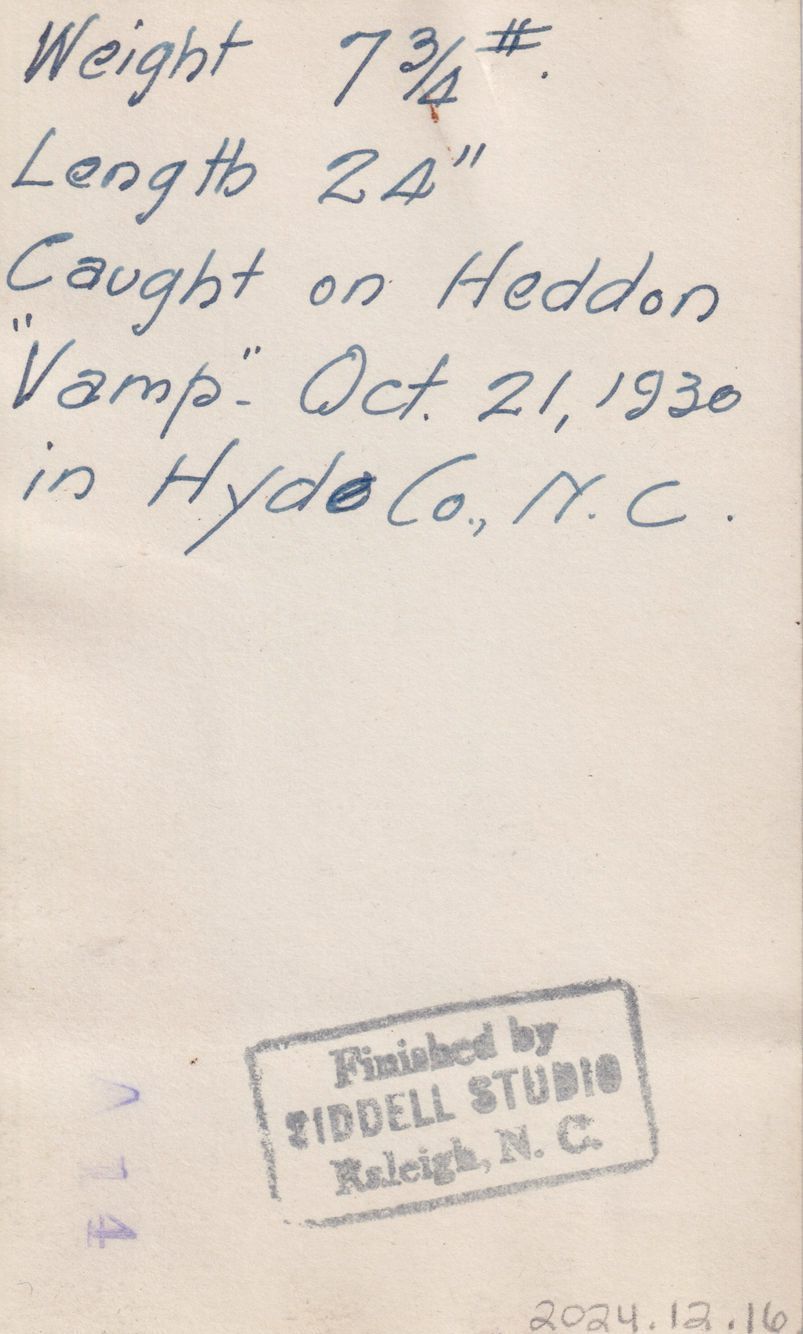 Weight 7 3/4 #.
Length 24"
Caught on Heddon
"Vamp". Oct. 21, 1930
in Hyde Co., N. C.
Finished by
SIDDELL STUDIO
Raleigh, N. C.
A 14
2024.12.16